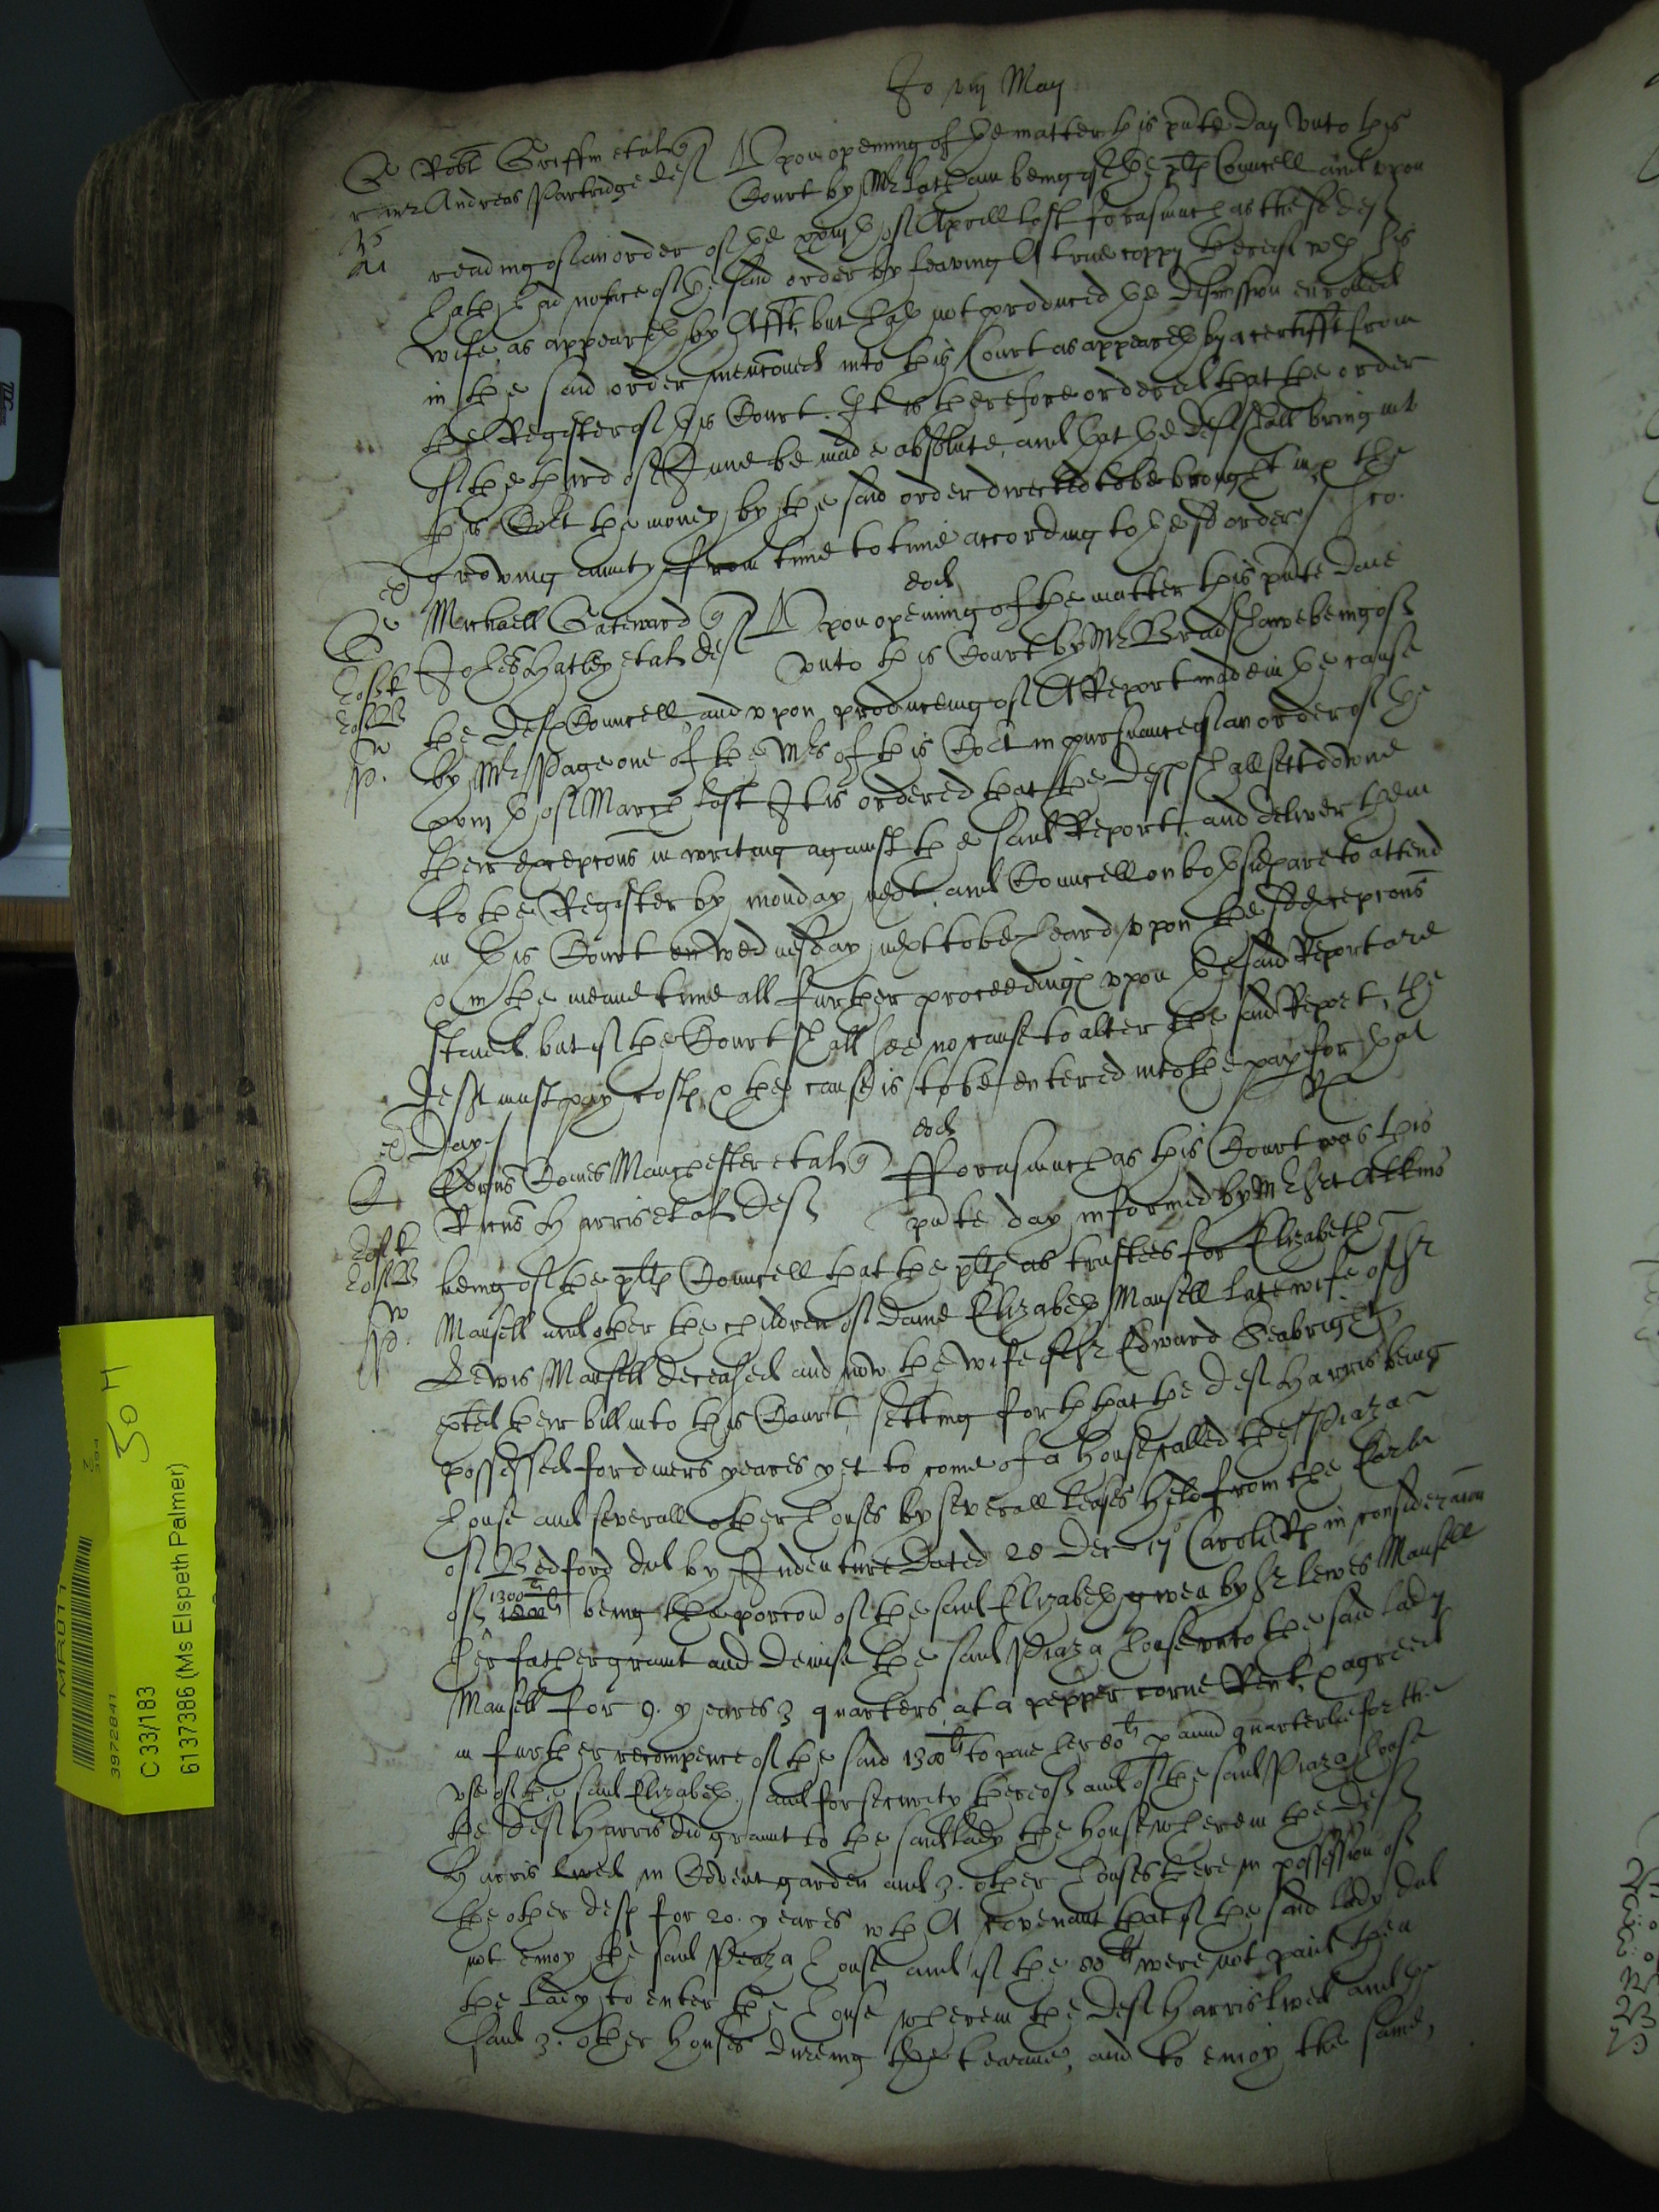 Jo viij May
Robt Griffin et al q
Andreas Partridge def
Upon opening of the matter this pnte day unto this
Court by Mr Latham being of the plts Councell and upon
reading of an order of the xxviijth of Aprill last forasmuch as the sd def
hath had notice of the said order by leaving A true coppy thereof wth his
wife as appeareth by Afft, but hath not produced the dismission enrolled
in the said order menconed into this Court as appeareth by a certifft from
the Register of this Court. It is therefore ordered that the order
of the third of June be made absolute, and that the def shall bring into
this Cort the money by the said order directed to be brought in, & the
growing annuity from time to time according to the sd order /
eod
Michaell Gateward q
Johes Hatley et al def
Upon opening of the matter this pnte daie
unto this Court by Mr Bradshawe being of
the defts Councell and upon produceing of A Report made in the cause
by Mr Page one of the Mrs of this Cort in pursuance of an order of the
xviijth of March last It is ordered that the defts shall sett downe
their excepcons in writing against the said Report, and deliver them
to the Register by monday next, and Councell on both sides are to attend
in this Court on wednesday next to be heard upon the sd excepcons
& in the meane time all further proceedings upon the said Report are
staied. but if the Court shall see no cause to alter the said Report, the
deft must pay costs & the cause is to be entered into the pap for that
Day /
eod
Comes Manchester et al q
Ricus Harris et al def
Forasmuch as this Court was this
pnte day informed by Mr Srt Atkins
being of the plts Councell that the plts as trustees for Elizabeth
Mansell and other the children of dame Elizabeth Mansell late wife of Sr
Lewis Mansell deceased and now the wife of Sr Edward Seabright
exted their bill into this Court, setting forth that the def Harris being
possessed for divers yeares yet to come of a house called the Piaza
house and severall other houses by severall leases held from the Earle
of Bedford did by Indenture Dated 28 Dec 17 Caroli Rs in consideracon
of 1300li being the porcon of the said Elizabeth given by Sr Lewes Mansell
her father graunt and demise the said Piaza house unto the said Lady
Mansell for 9. yeares 3 quarters at a pepper corne Rent, & agreed
in further recompence of the said 1300li to paie her 80li p annu quarterlie for the
use of the said Elizabeth, and for security thereof and of the said Piaza house
the def Harris did graunt to the said Lady the house wherein the def
Harris lived in Covent garden and 3. other houses there in possession of
the other defts for 20. yeares wth A covenant that if the said Lady did
not enioy the said Piaza house and if the 80li were not paid then
the Lady to enter the house wherein the def Harris lived and the
said 3. other houses dureing the tearme, and to enioy the same,
MR011
3972841
C 33/183
6137386 (Ms Elspeth Palmer)
50 H